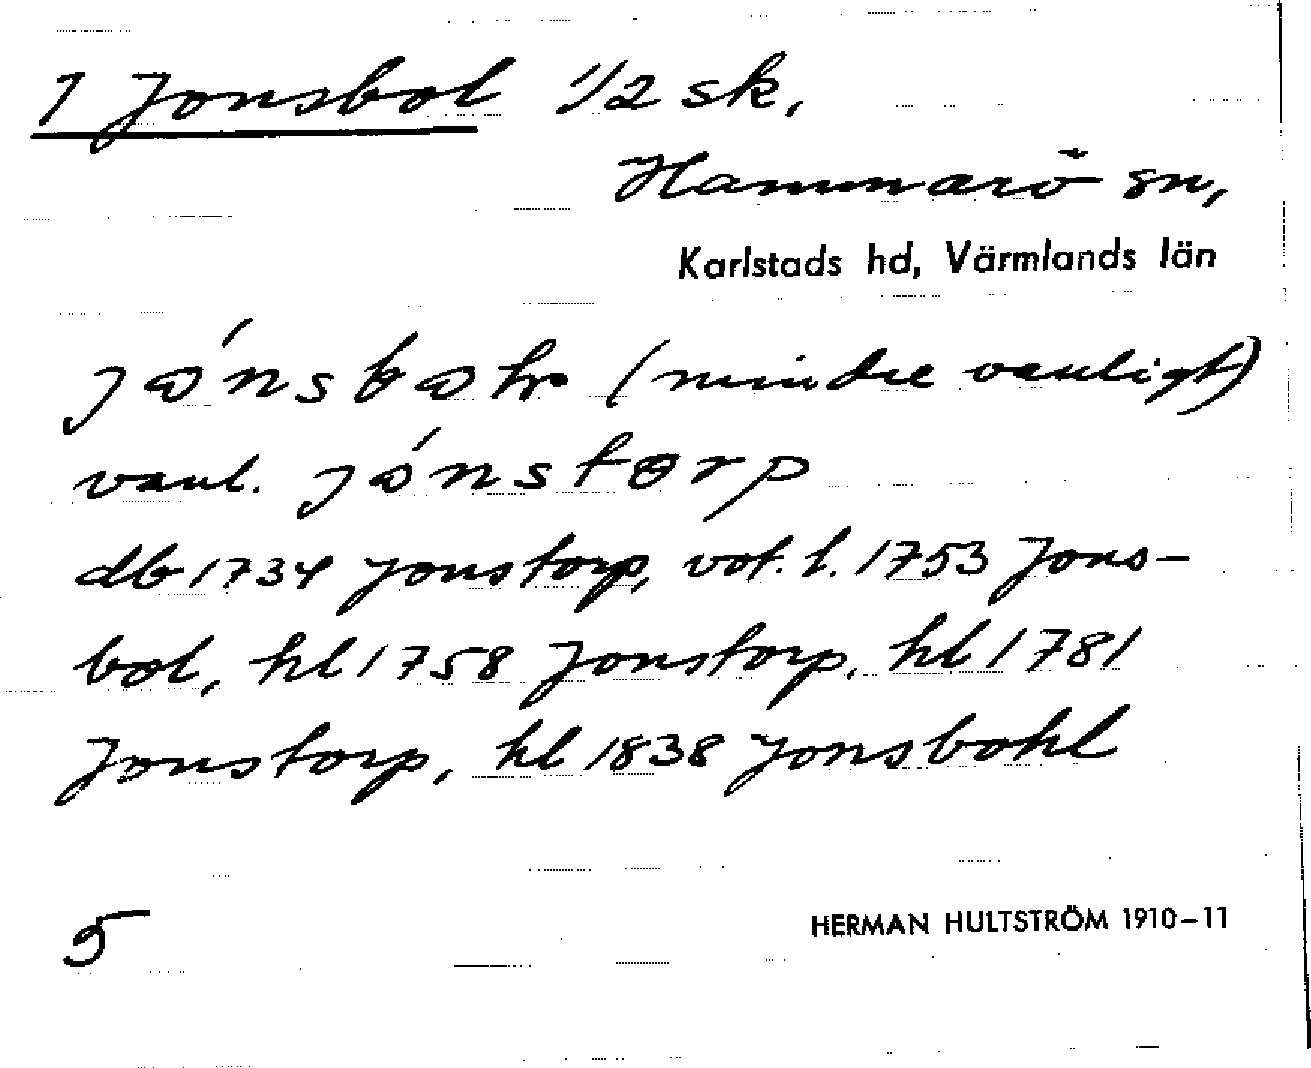 1 Jonsbol 1/2 sk,
Hammarö sn,
Karlstads hd, Värmlands län
(mindre vanligt)
vanl. jónstorp
db 1734 Jonstorp, vot. l. 1753 Jons-
bol, hl 1758 Jonstorp, hl 1781
Jonstorp, hl 1838 Jonsbohl
5
HERMAN HULTSTRÖM 1910-11